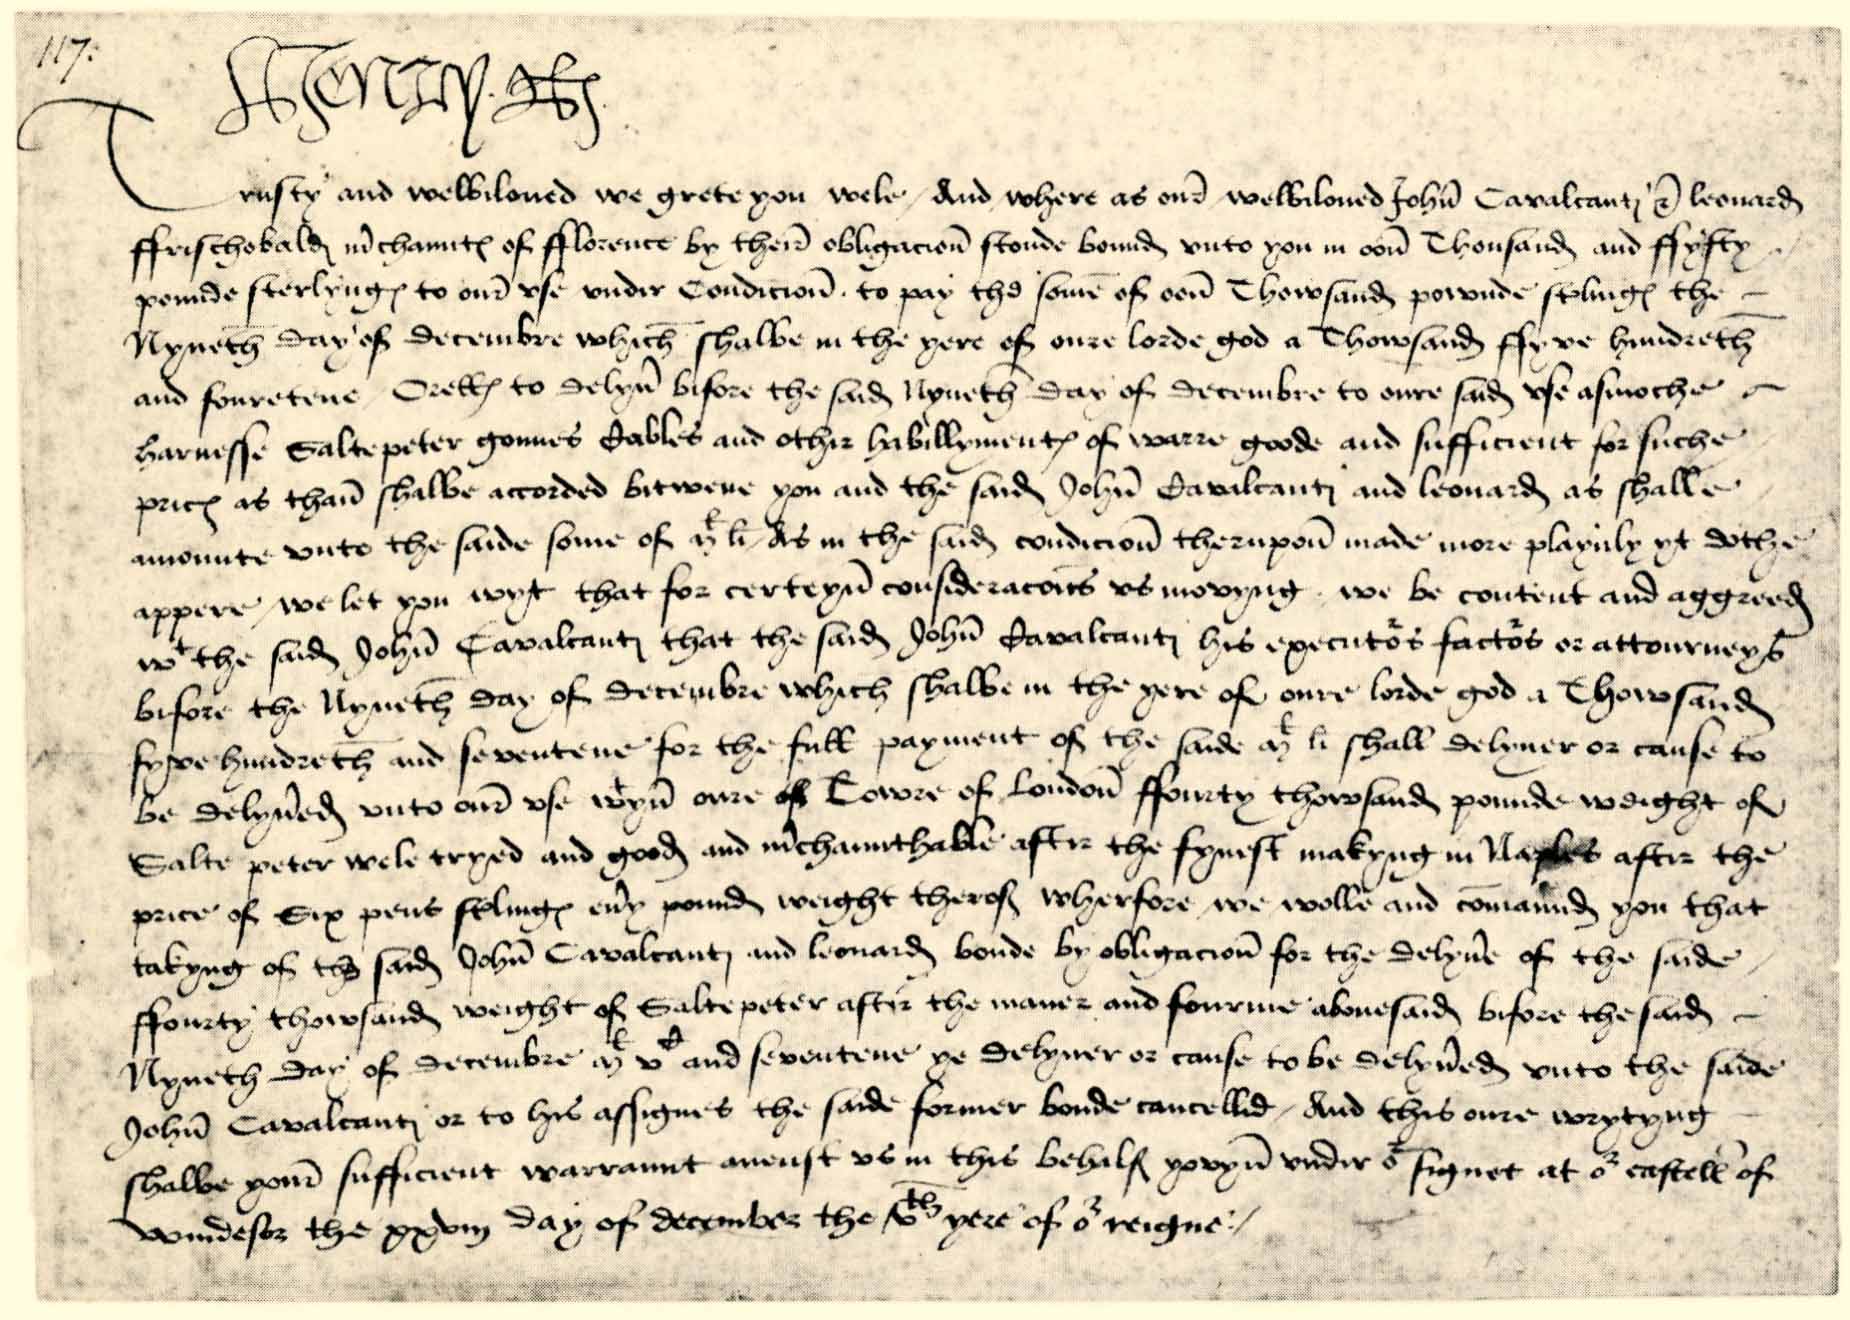 117.
Henry R
Trusty and welbiloued we grete you wele / And where as our welbiloued John Cavalcanti & leonard
ffrischobald m'chaunt of fflorence by their obligacion stonde bound vnto you in oon Thousand and ffyfty
pounde sterlyng to our vse vndir Condicion . to pay the some of oon Thowsand pownde st'ling the
Nyneth day of decembre which shalbe in the yere of oure lorde god a Thowsand ffyve hundreth
and fouretene / Orells to delyu' bifore the said Nyneth day of decembre to oure said vse asmoche
harnesse Saltepeter gonnes Cables and othir habillyment of warre goode and sufficient for suche
pric as than shalbe accorded bitwene you and the said John Cavalcanti and leonard as shalle
amounte vnto the saide some of Ml li / As in the said condicion therupon made more playnly yt dothe
appere / we let you wyt that for certeyn consideracons vs movyng . we be content and aggreed
wt the said John Cavalcanti that the said John Cavalcanti his executors factors or attourneys
bifore the Nyneth day of decembre which shalbe in the yere of oure lorde god a Thowsand
fyve hundreth and seventene for the full payment of the saide Ml li shall delyuer or cause to
be delyu'ed vnto our vse wtyn oure Towre of London ffourty thowsand pounde weight of
Salte peter wele tryed and good and m'chaunthable aftir the fynest makyng in Naples aftir the
price of Six pens st'ling eu'y pound weight therof wherfore we wolle and comaund you that
takyng of the said John Cavalcanti and leonard bonde by obligacion for the delyu'e of the saide
ffourty thowsand weight of Saltepeter aftir the maner and fourme abouesaid bifore the said
Nyneth day of decembre Ml vC and seventene ye delyuer or cause to be delyu'ed vnto the saide
John Cavalcanti or to his assignes the saide former bonde cancellid / And this oure wrytyng
shalbe your sufficient warraunt anenst vs in this behalf yovyn vndir or signet at or castell of
windesor the xxviij day of december the vth yere of or reigne /